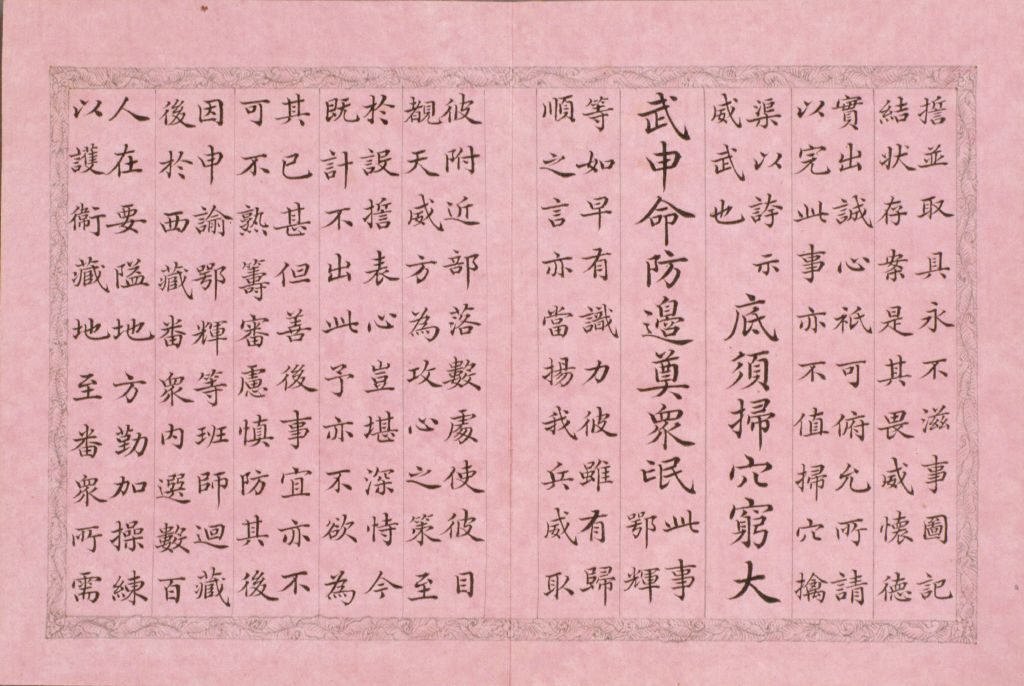 誓並取具永不滋事圖記
結狀存案是其畏威懷德
實出誠心祇可俯允所請
以完此事亦不值掃穴擒
渠以誇示
威武也
底須掃穴窮大
武申命防邊奠衆氓
此事
鄂輝
等如早有識力彼雖有歸
順之言亦當揚我兵威取
彼附近部落數處使彼目
覩天威方為攻心之策至
於設誓表心豈堪深恃今
既計不出此予亦不欲為
其已甚但善後事宜亦不
可不熟籌審慮慎防其後
因申諭鄂輝等班師迴藏
後於西藏番衆內選數百
人在要隘地方勤加操練
以護衞藏地至番衆所需